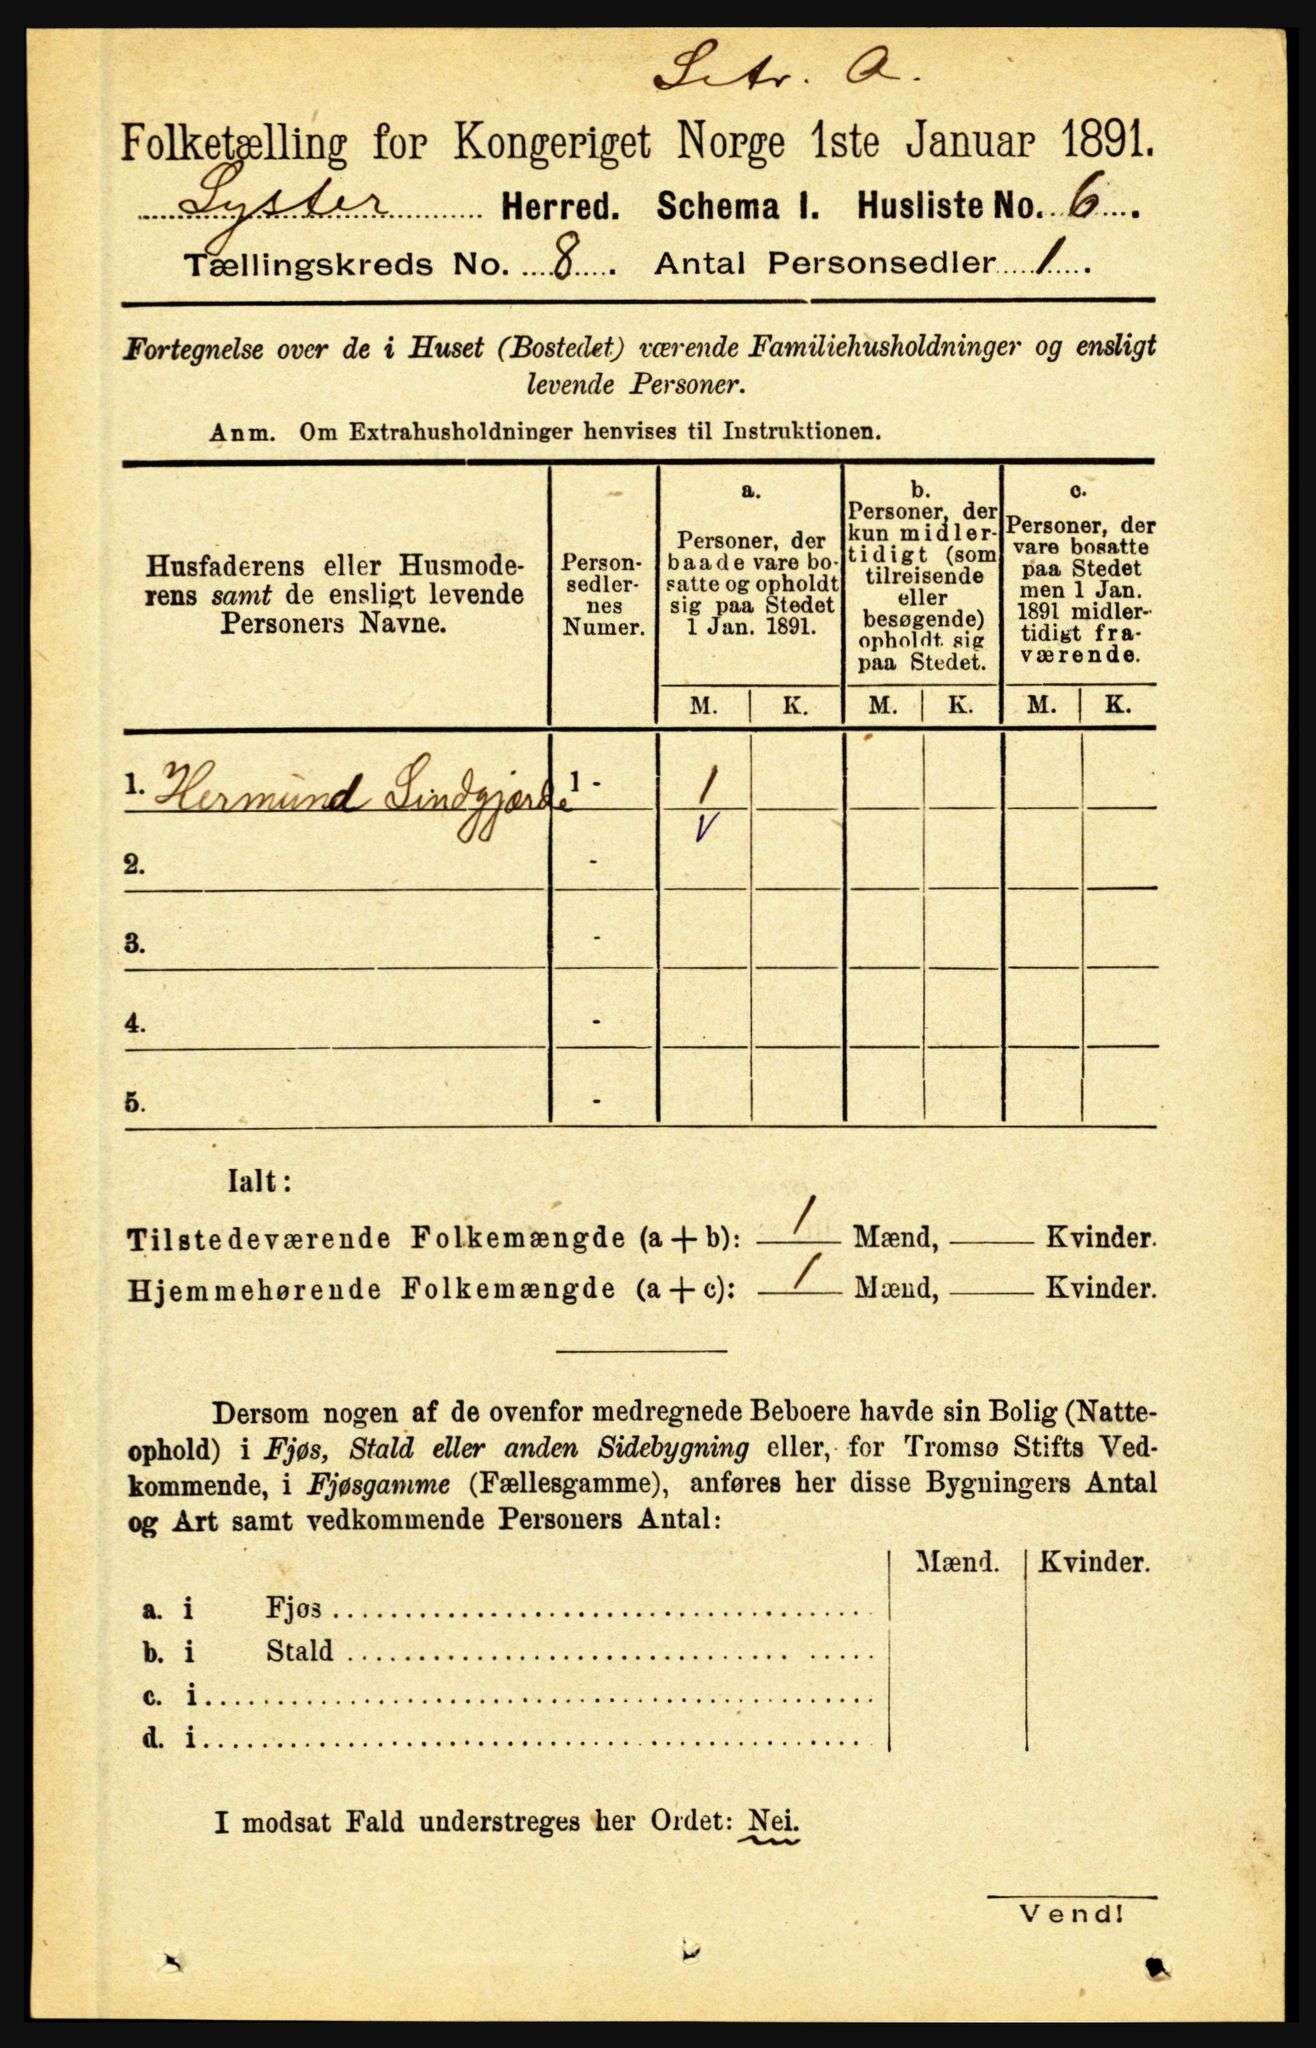 Litr. A.
Folketælling for Kongeriget Norge 1ste Januar 1891.
Lyster Herred. Schema I. Husliste No. 6.
Tællingskreds No. 8. Antal Personsedler 1.
Fortegnelse over de i Huset (Bostedet) værende Familiehusholdninger og ensligt
levende Personer.
Anm. Om Extrahusholdninger henvises til Instruktionen.
Husfaderens eller Husmode-
rens samt de ensligt levende
Personers Navne.
Person-
sedler-
nes
Numer.
a.
Personer, der
baade vare bo-
satte og opholdt
sig paa Stedet
1 Jan. 1891.
b.
Personer, der
kun midler-
tidigt (som
tilreisende
eller
besøgende)
opholdt sig
paa Stedet.
c.
Personer, der
vare bosatte
paa Stedet
men 1 Jan.
1891 midler-
tidigt fra-
værende.
M. K. M. K. M. K.
1. Hermund Lindgjærde 1 - 1
V
2. -
3. -
4. -
5. -
Ialt:
Tilstedeværende Folkemængde (a + b): 1 Mænd, — Kvinder.
Hjemmehørende Folkemængde (a + c): 1 Mænd, — Kvinder.
Dersom nogen af de ovenfor medregnede Beboere havde sin Bolig (Natte-
ophold) i Fjøs, Stald eller anden Sidebygning eller, for Tromsø Stifts Ved-
kommende, i Fjøsgamme (Fællesgamme), anføres her disse Bygningers Antal
og Art samt vedkommende Personers Antal:
Mænd. Kvinder.
a. i Fjøs
b. i Stald
c. i
d. i
I modsat Fald understreges her Ordet: Nei.
Vend!